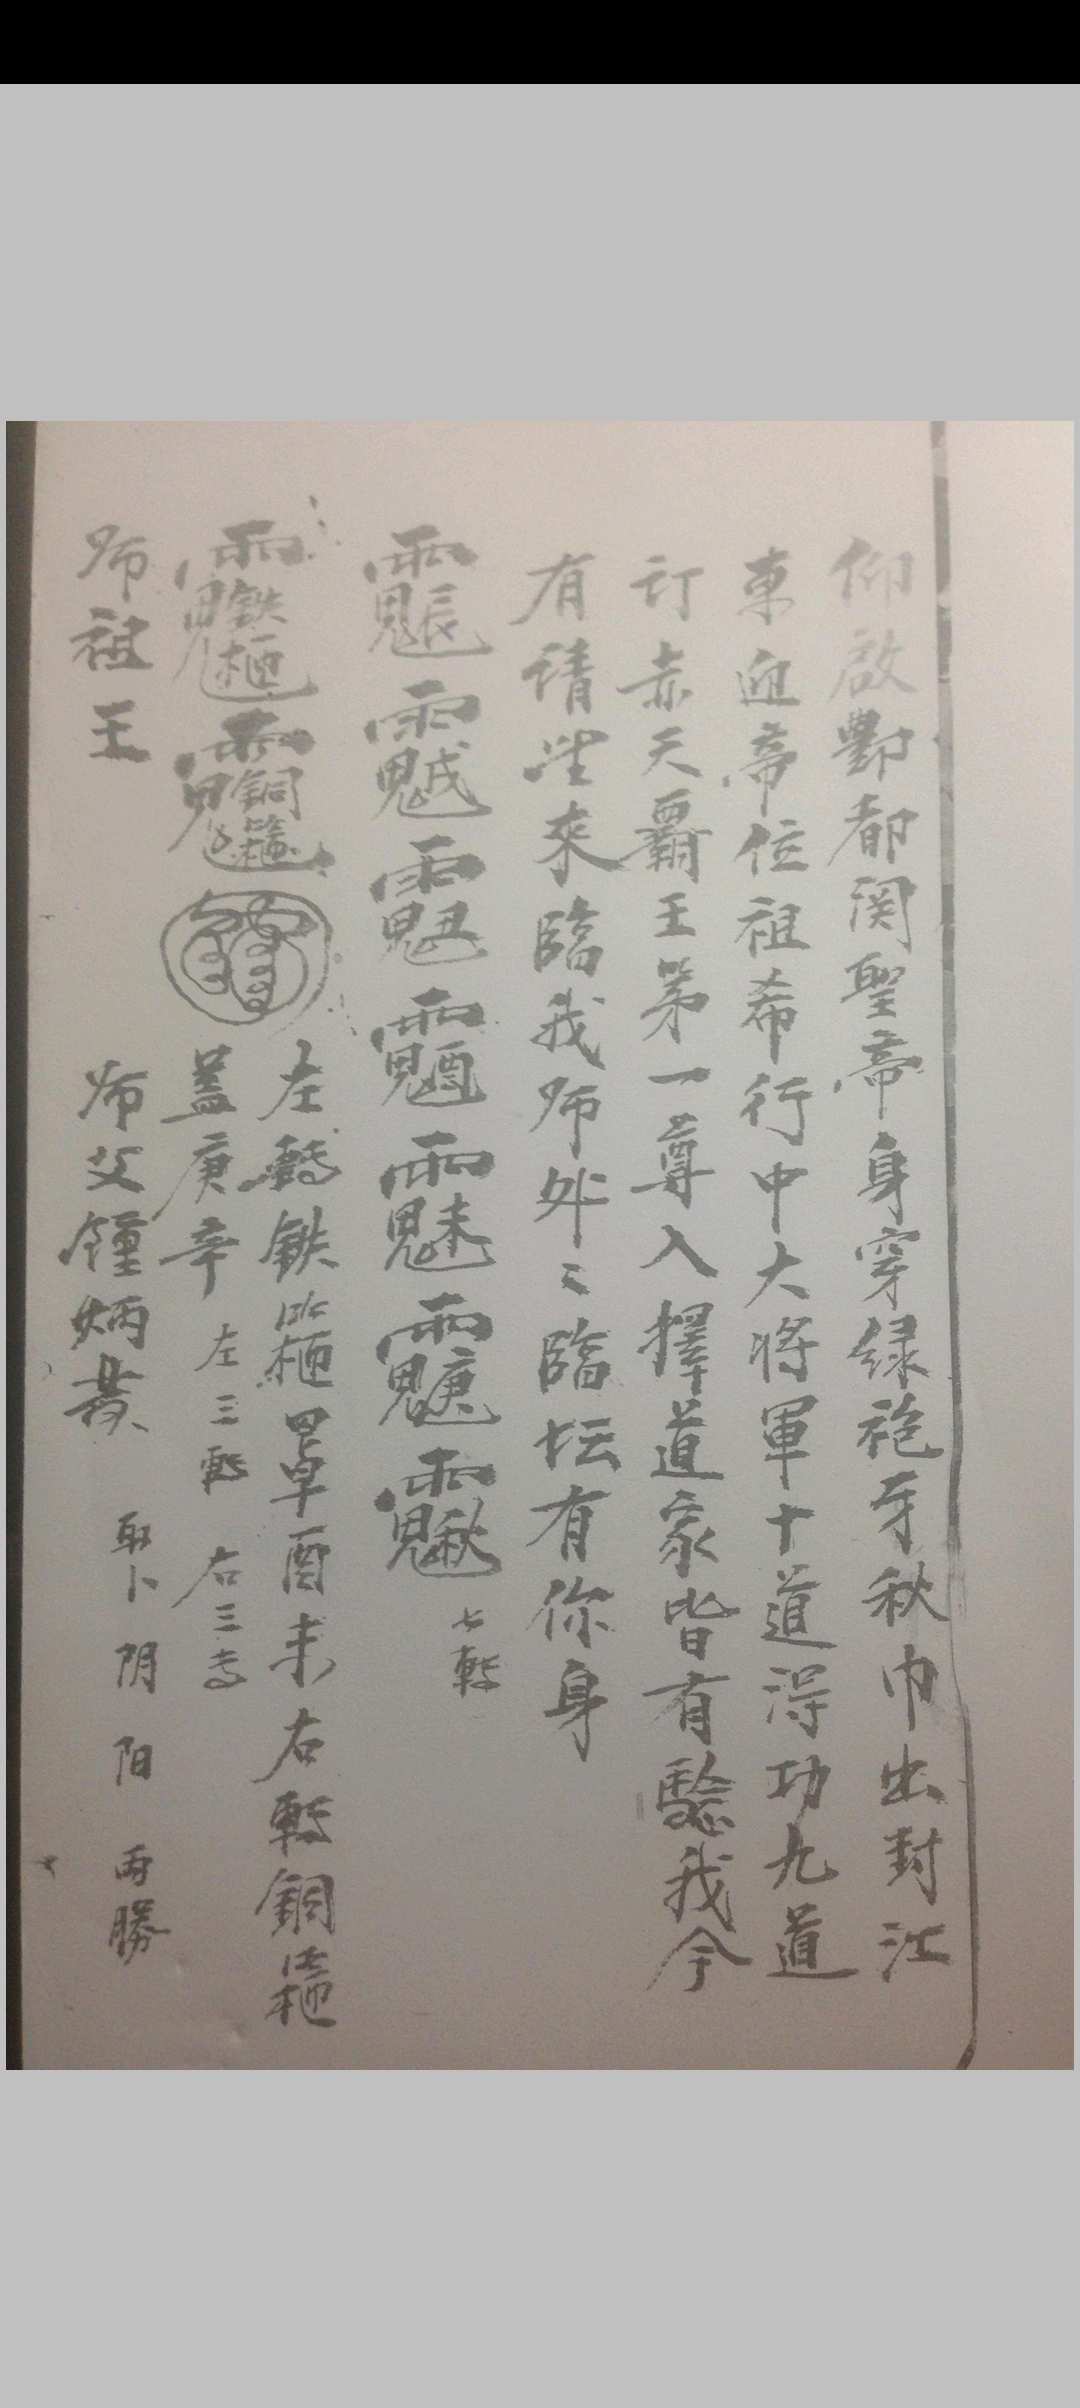 仰啟酆都関聖帝身穿绿袍牙秋巾出封江
東迎帝位祖希行中大将軍十道得功九道
订赤天霸王第一尊入擇道家皆有驗我今
有请坐來臨我师外〻臨坛有你身
七轉
左轉鉄箍罩酉未右轉銅箍
蓋庚辛 左三轉 右三轉
师祖王 师父鐘炳 取卜 阴 阳 两 勝